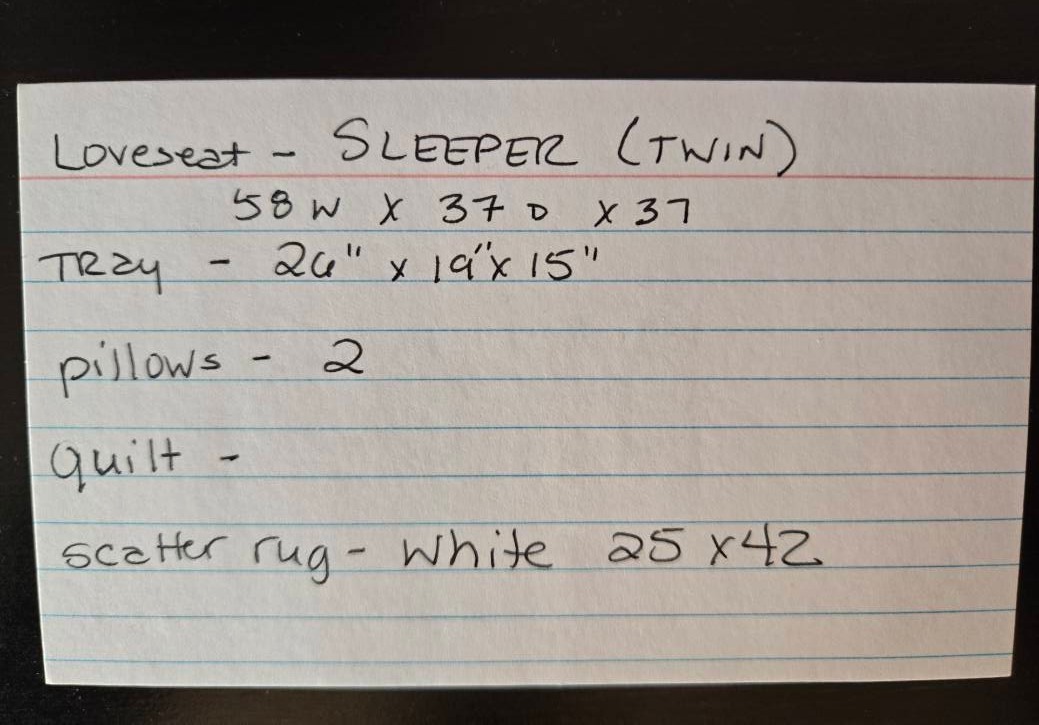 Loveseat - SLEEPER (TWIN)
58 W X 37 D X 37
TRay - 26" x 19" x 15"
pillows - 2
quilt -
scatter rug - white 25 x 42